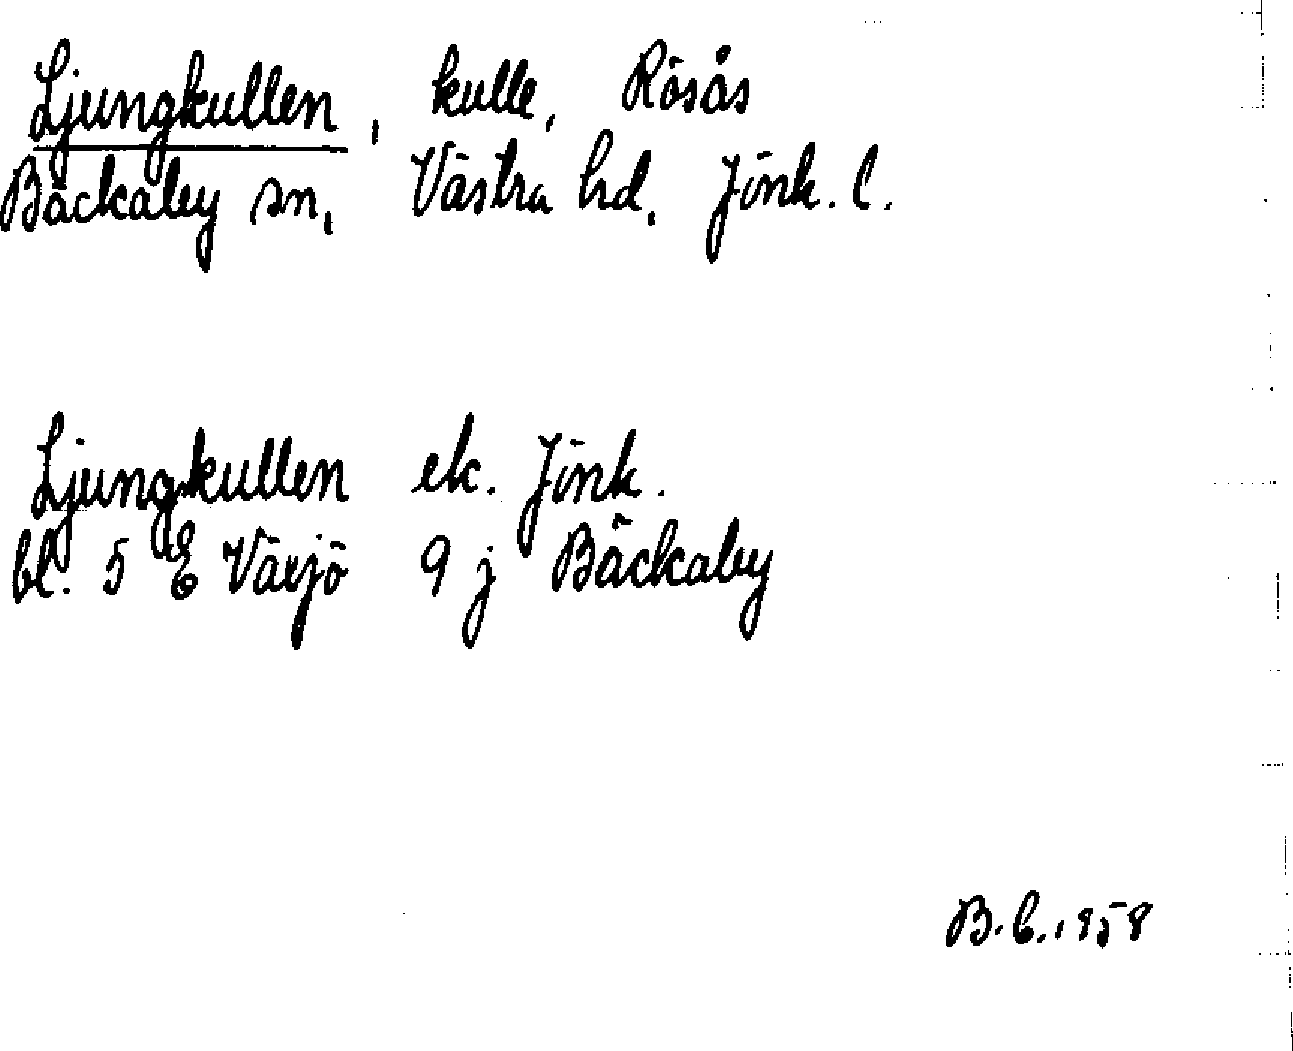 Ljungkullen, kulle, Rösås
Bäckaby sn, Västra hd, Jönk. l.
Ljungkullen ek. Jönk.
bl. 5 E Växjö 9 j Bäckaby
B. E. 1958